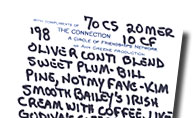 70CS 20MER
WITH COMPLIMENTS OF
198 THE CONNECTION 10CF
A CIRCLE OF FRIENDSHIPS NETWORK
AN GREENE PRODUCTION
OLIVER CONTI BLEND
SWEET PLUM-BILL
PINE, NOT MY FAVE-KIM
SMOOTH BAILEY'S IRISH
CREAM WITH COFFEE. LIVE